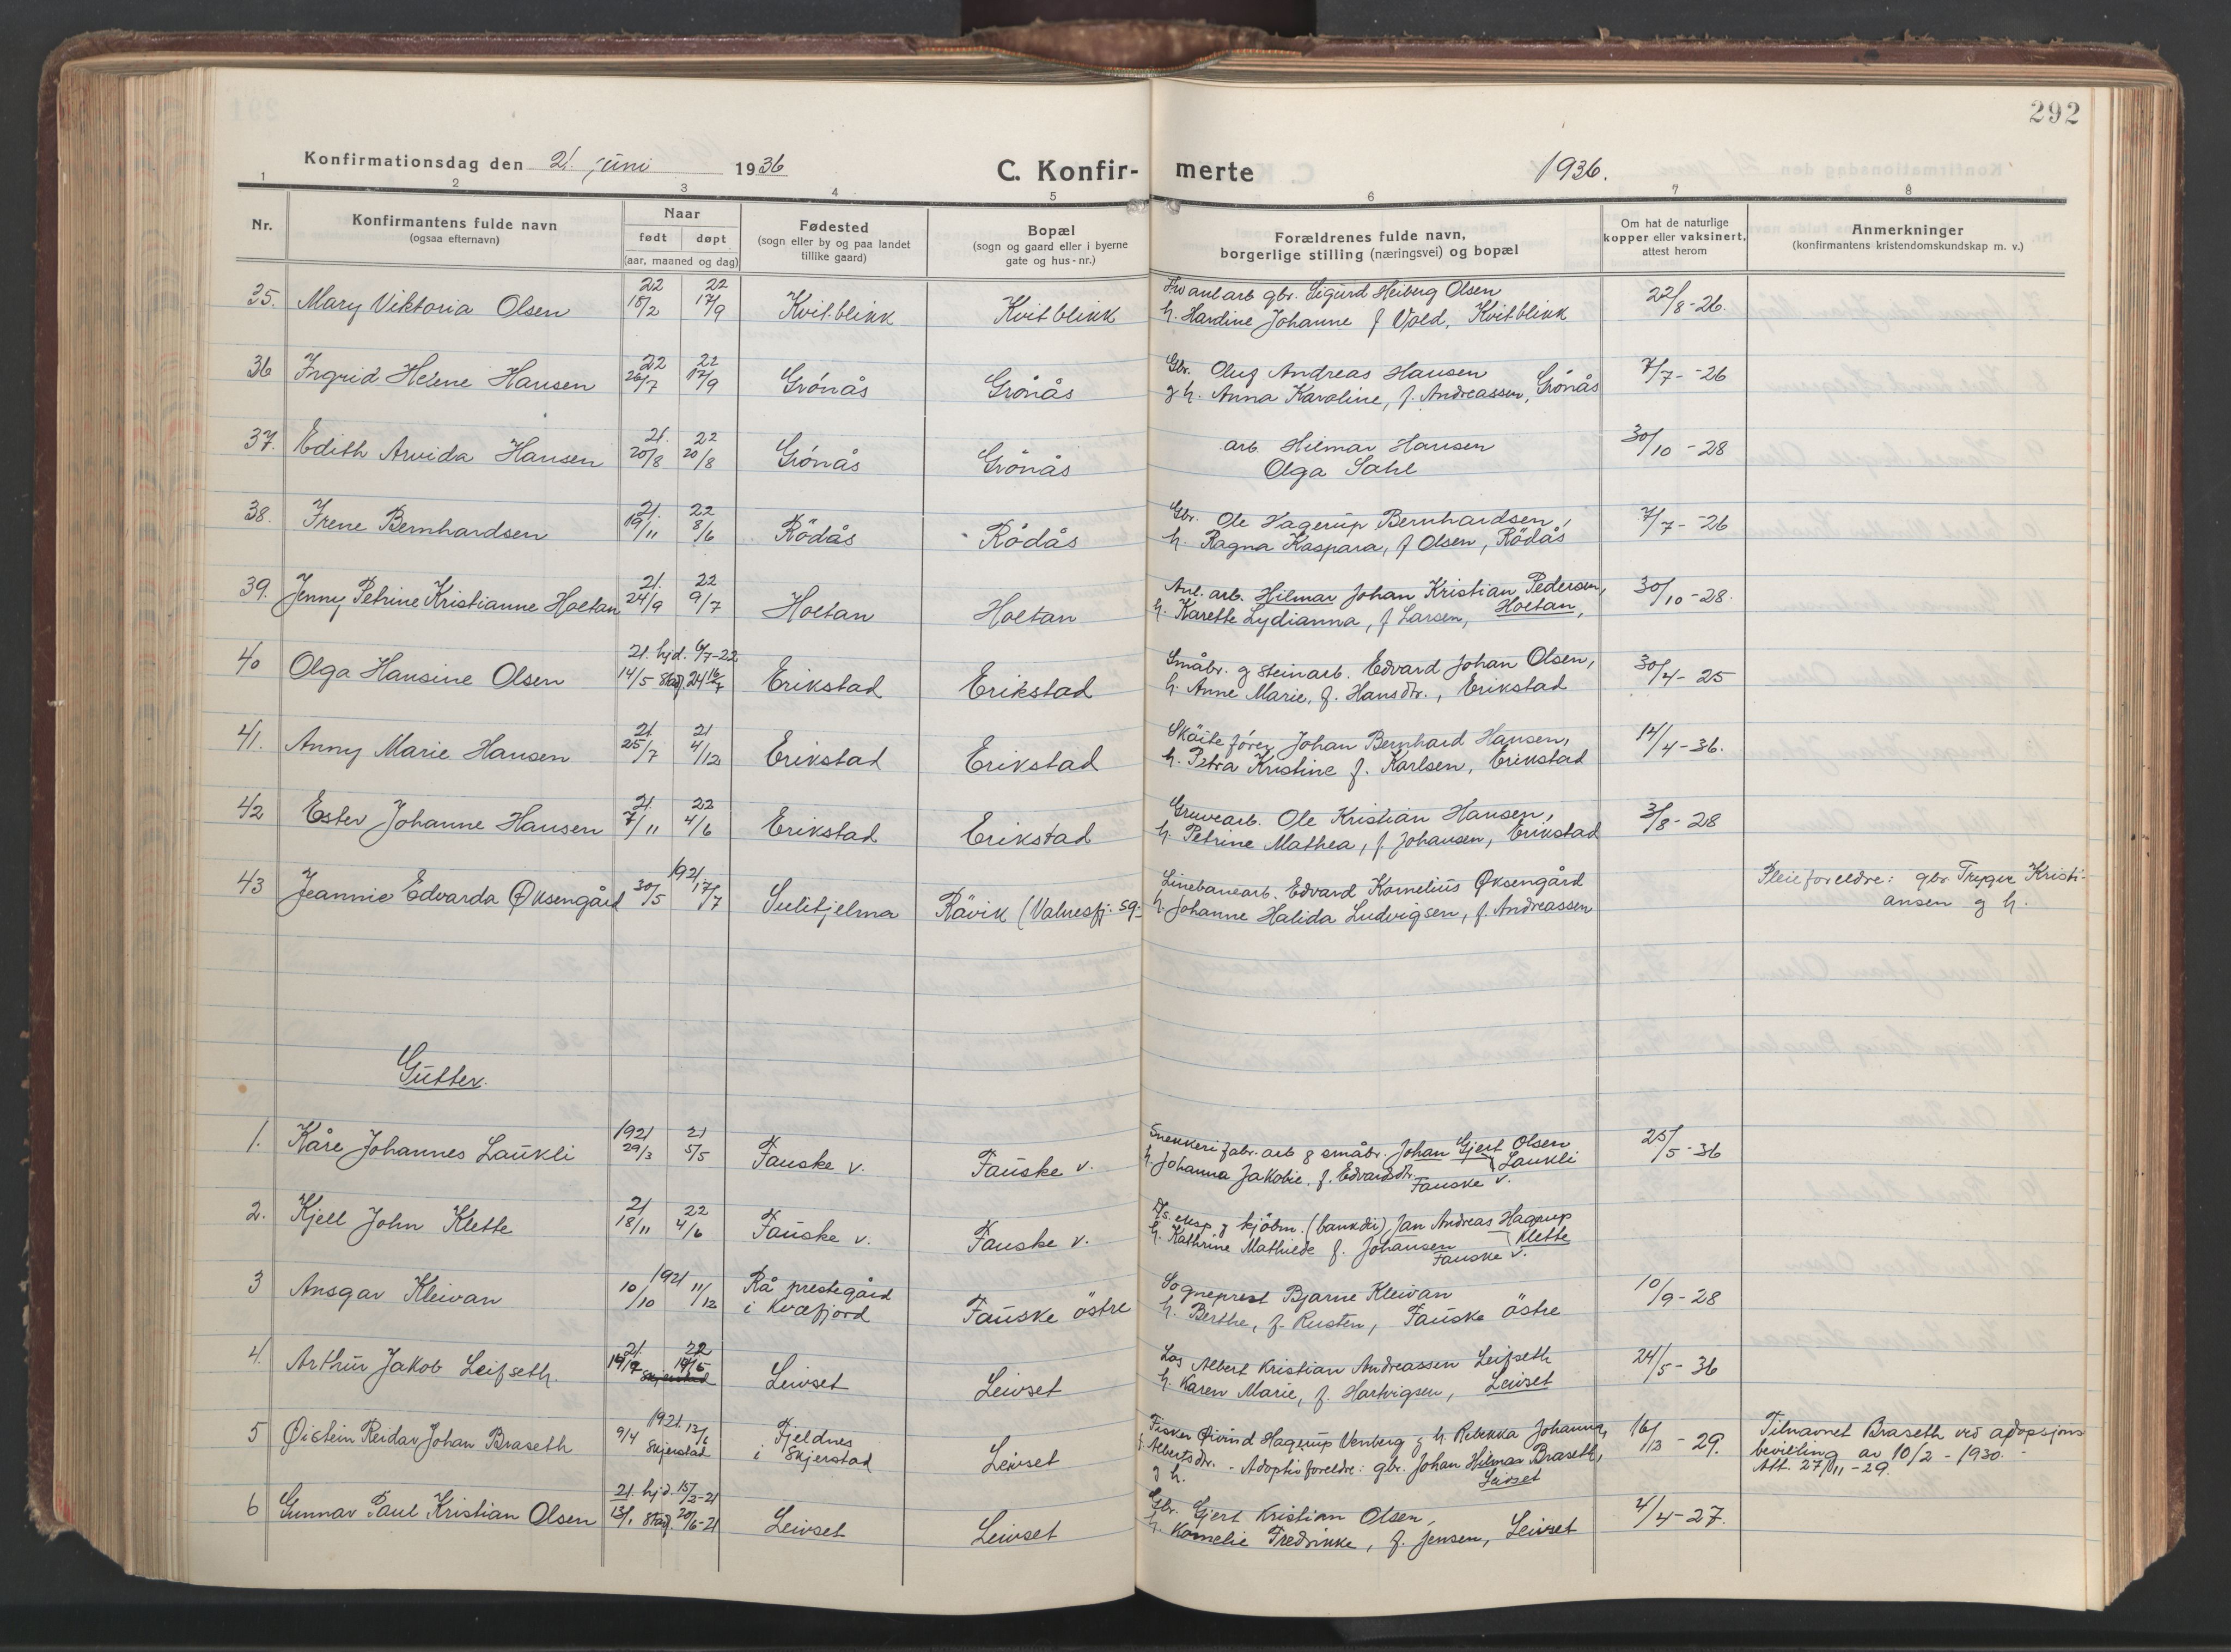 292
Konfirmationsdag den 21. juni 1936 C. Konfir- merte 1936.
1 2 3 4 5 6 7 8
Nr. Konfirmantens fulde navn (ogsaa efternavn) Naar født døpt (aar, maaned og dag) Fødested (sogn eller by og paa landet tillike gaard) Bopæl (sogn og gaard eller i byerne gate og hus-nr.) Forældrenes fulde navn, borgerlige stilling (næringsvei) og bopæl Om hat de naturlige kopper eller vaksinert, attest herom Anmerkninger (konfirmantens kristendomskundskap m. v.)
22 22 anlarb gbr. Sigurd Heiberg Olsen
35. Mary Viktoria Olsen 18/2 17/9 Kvitblikk Kvitblikk h. Hardine Johanne f Vold, Kvitblikk 22/8-26.
22 22 Gbr. Oluf Andreas Hansen
36 Ingrid Helene Hansen 26/7 17/9 Grönås Grönås g h. Anna Karoline, f. Andreassen, Grönås 7/7--26
21. 22 arb. Hilmar Hansen
37. Edith Arvida Hansen 20/8 20/8 Grönås Grönås Olga Sahl 30/10-28
21. 22 Gbr. Ole Hagerup Bernhardsen,
38. Irene Bernhardsen 19/11 8/6 Rödås Rödås h. Ragna Kaspara, f Olsen, Rödås 7/7--26
21. 22 Anl. arb. Hilmar Johan Kristian Pedersen,
39. Jenny Petrine Kristianne Holtan 24/9 9/7 Holtan Holtan h. Karette Lydianna, f Larsen, Holtan, 30/10-28.
21. hjd. 6/7-22 Småbr. g steinarb. Edvard Johan Olsen,
40 Olga Hansine Olsen 14/5 Stadf. 24 16/7 Erikstad Erikstad h. Anne Marie, f. Hansdtr., Erikstad 30/4-25
21. 21 Sköiteförer Johan Bernhard Hansen,
41. Anny Marie Hansen 25/7 4/12 Erikstad Erikstad h. Petra Kristine f. Karlsen, Erikstad 14/4-36.
21. 22 Gruvearb. Ole Kristian Hansen,
42 Ester Johanne Hansen 7/11 4/6 Erikstad Erikstad h. Petrine Mathea, f. Johansen, Erikstad 3/8-28
1921 Linebanearb. Edvard Kornelius Øksengård Pleieforeldre: gbr. Trygve Kristi-
43 Jeannie Edvarda Øksengård 30/5 17/7 Sulitjelma Rävik (Valnesfj. sg. h. Johanne Halida Ludvigsen, f. Andreassen ansen g h.
Gutter.
1921 21 Snekkerifabr. arb g småbr. Johan Gjert Olsen
1. Kåre Johannes Laukli 29/3 5/5 Fauske v. Fauske v. h. Johanna Jakobie, f. Edvardsdtr. Laukli 25/5-36
Fauske v.
21 22 Ds. eksp. g kjöbm. (bankdir) Jan Andreas Hagerup
2. Kjell John Klette 18/11 4/6 Fauske v. Fauske v. h. Kathrine Mathilde f. Johansen Klette
Fauske v.
1921 Rå prestegård Sogneprest Bjarne Kleivan
3 Ansgar Kleivan 10/10 11/12 i Kvæfjord Fauske östre h. Berthe, f. Rusten, Fauske östre 10/9-28
21. 22 Los Albert Kristian Andreassen Leifseth
4. Arthur Jakob Leifseth. 19/7 14/5 Skjerstad Leivset Leivset h. Karen Marie, f. Hartvigsen, Leivset 24/5-36
1921. 12/6 Fjeldnes Fisker Øivind Hagerup Venberg g h. Rebekka Johanna, Tilnavnet Braseth ved adopsjons
5 Øistein Reidar Johan Braseth 9/4 Skjerstad i Skjerstad Leivset f. Albertsdtr. - Adoptivforeldre: gbr. Johan Hilmar Braseth, 16/12-29. bevilling av 10/2-1930.-
g h. Leivset Att. 27/11-29.
21. hjd. 15/2-21 Gbr. Gjert Kristian Olsen,
6 Gunnar Paul Kristian Olsen 13/1 Stadf. 20/6-21 Leivset Leivset h. Kornelie Fredrikke, f. Jensen, Leivset 4/4-27.